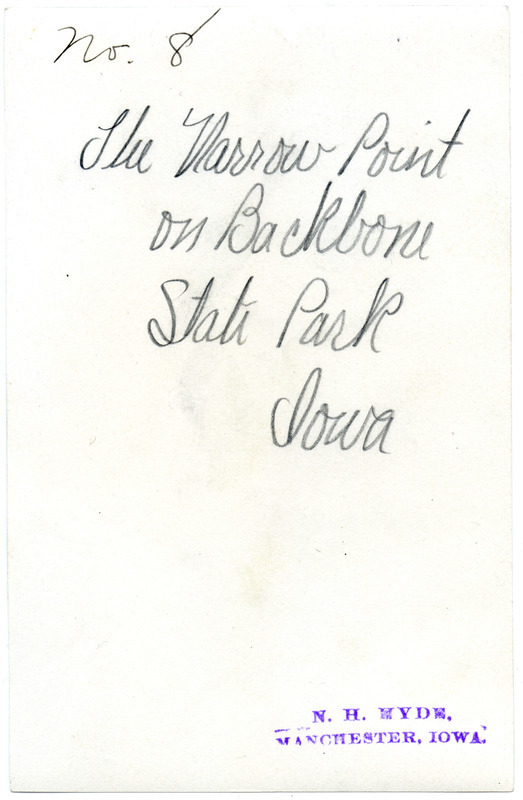 No. 8
The Narrow Point
on Backbone
State Park
Iowa
N. H. HYDE,
MANCHESTER, IOWA.